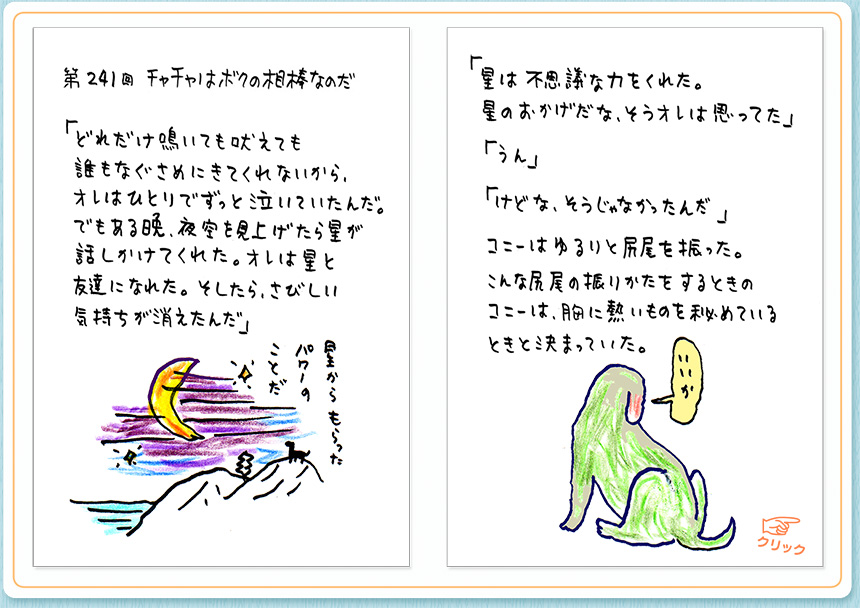 第241回 チャチャはボクの相棒なのだ
「どれだけ鳴いても吠えても
誰もなぐさめにきてくれないから、
オレはひとりでずっと泣いていたんだ。
でもある晩、夜空を見上げたら星が
話しかけてくれた。オレは星と
友達になれた。そしたら、さびしい
気持ちが消えたんだ」
星からもらった
パワーの
ことだ
「星は不思議な力をくれた。
星のおかげだな、そうオレは思ってた」
「うん」
「けどな、そうじゃなかったんだ」
コニーはゆるりと尻尾を振った。
こんな尻尾の振りかたをするときの
コニーは、胸に熱いものを秘めている
ときと決まっていた。
いいか
クリック